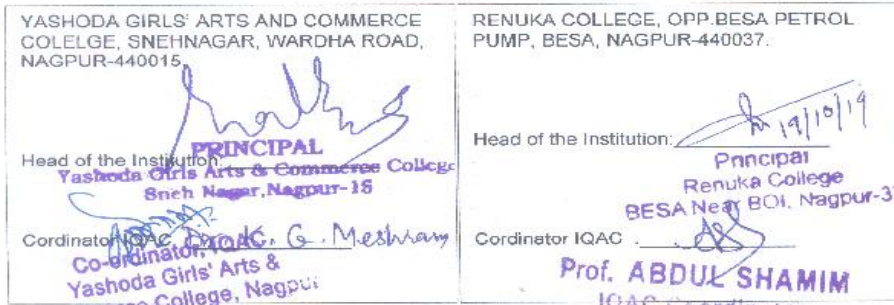 YASHODA GIRLS' ARTS AND COMMERCE
COLELGE, SNEHNAGAR, WARDHA ROAD,
NAGPUR-440015.
Head of the Institution:
PRINCIPAL
Yashoda Girls Arts & Commerce College
Sneh Nagar, Nagpur-15
Cordinator IQAC. Dr. K. G. Meshram
Co-ordinator, IQAC,
Yashoda Girls' Arts &
College, Nagpur
RENUKA COLLEGE, OPP.BESA PETROL
PUMP, BESA, NAGPUR-440037.
Head of the Institution: 19/10/19
Principal
Renuka College
BESA Near BOI, Nagpur-37
Cordinator IQAC .
Prof. ABDUL SHAMIM
IQAC